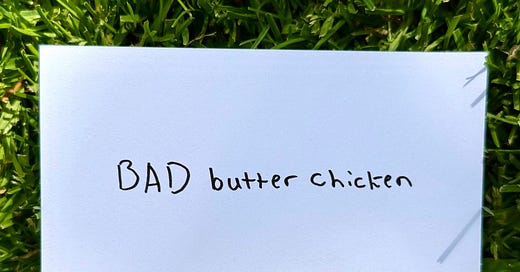 BAD butter chicken